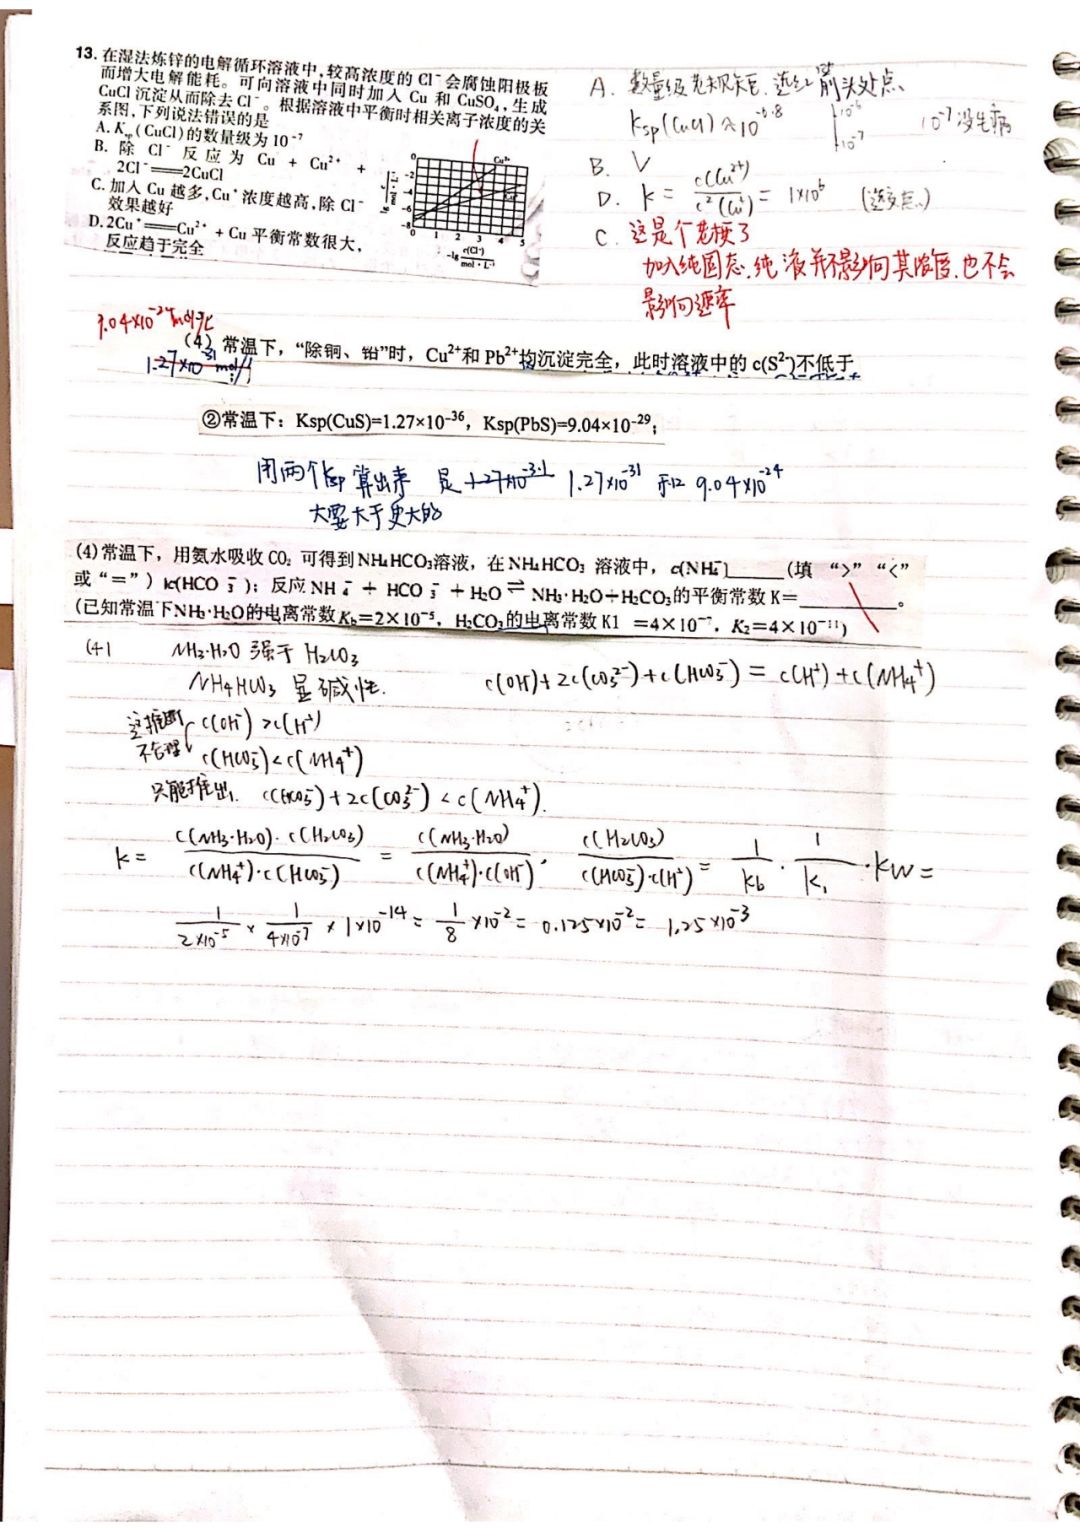 13. 在湿法炼锌的电解循环溶液中,较高浓度的 Cl⁻会腐蚀阳极板
而增大电解能耗。可向溶液中同时加入 Cu 和 CuSO₄,生成
CuCl 沉淀从而除去 Cl⁻。根据溶液中平衡时相关离子浓度的关
系图,下列说法错误的是
A. Ksp(CuCl)的数量级为 10⁻⁷
B. 除 Cl⁻ 反应为 Cu + Cu²⁺ +
2Cl⁻══2CuCl
C. 加入 Cu 越多,Cu⁺浓度越高,除 Cl⁻
效果越好
D. 2Cu⁺══Cu²⁺ + Cu 平衡常数很大,
反应趋于完全
0
-2
-4
-6
-8
0 1 2 3 4 5
Cu²⁺
-lg c(Cl⁻)/mol·L⁻¹
A. 数量级老规矩,选红箭头处点
Ksp(CuCl)≈10⁻⁶·⁸
10⁻⁶
10⁻⁷
10⁻⁷没毛病
B. √
D. K = c(Cu²⁺)/c²(Cu⁺) = 1×10⁶ (选交点)
C. 这是个老梗了
加入纯固态、纯液并不影响其浓度,也不会
影响速率
9.04×10⁻²⁴mol/L
1.27×10⁻³¹ mol/l
(4) 常温下,“除铜、铅”时,Cu²⁺和 Pb²⁺均沉淀完全,此时溶液中的 c(S²⁻)不低于
②常温下:Ksp(CuS)=1.27×10⁻³⁶,Ksp(PbS)=9.04×10⁻²⁹;
用两个Ksp 算出来 是 1.27×10⁻³¹ 1.27×10⁻³¹ 和 9.04×10⁻²⁴
大要大于更大的
(4)常温下,用氨水吸收 CO₂ 可得到NH₄HCO₃溶液,在 NH₄HCO₃ 溶液中,c(NH₄⁺)______(填 “>” “<”
或“=”)c(HCO₃⁻);反应 NH₄⁺ + HCO₃⁻ + H₂O ⇌ NH₃·H₂O+H₂CO₃的平衡常数 K=________。
(已知常温下NH₃·H₂O的电离常数 Kb=2×10⁻⁵,H₂CO₃的电离常数 K1 =4×10⁻⁷,K₂=4×10⁻¹¹)
(4) NH₃·H₂O 强于 H₂CO₃
NH₄HCO₃ 显碱性. c(OH⁻)+2c(CO₃²⁻)+c(HCO₃⁻) = c(H⁺)+c(NH₄⁺)
这推断 c(OH⁻)>c(H⁺)
不合理 c(HCO₃⁻)<c(NH₄⁺)
只能推出. c(HCO₃⁻)+2c(CO₃²⁻)<c(NH₄⁺).
K = c(NH₃·H₂O)·c(H₂CO₃)/c(NH₄⁺)·c(HCO₃⁻) = c(NH₃·H₂O)/c(NH₄⁺)·c(OH⁻) · c(H₂CO₃)/c(HCO₃⁻)·c(H⁺) = 1/Kb · 1/K₁ ·Kw =
1/2×10⁻⁵ × 1/4×10⁻⁷ × 1×10⁻¹⁴ = 1/8 ×10⁻² = 0.125×10⁻² = 1.25×10⁻³